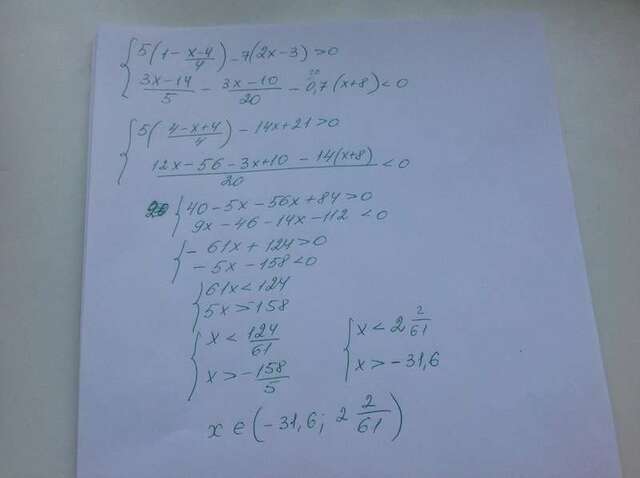 { 5(1 - (x-4)/4) - 7(2x-3) > 0
(3x-14)/5 - (3x-10)/20 - 0,7(x+8) < 0
{ 5((4-x+4)/4) - 14x + 21 > 0
(12x - 56 - 3x + 10 - 14(x+8))/20 < 0
{ 40 - 5x - 56x + 84 > 0
9x - 46 - 14x - 112 < 0
{ - 61x + 124 > 0
- 5x - 158 < 0
{ 61x < 124
5x > -158
{ x < 124/61
x > - 158/5
{ x < 2 2/61
x > - 31,6
x ∈ (-31,6; 2 2/61)